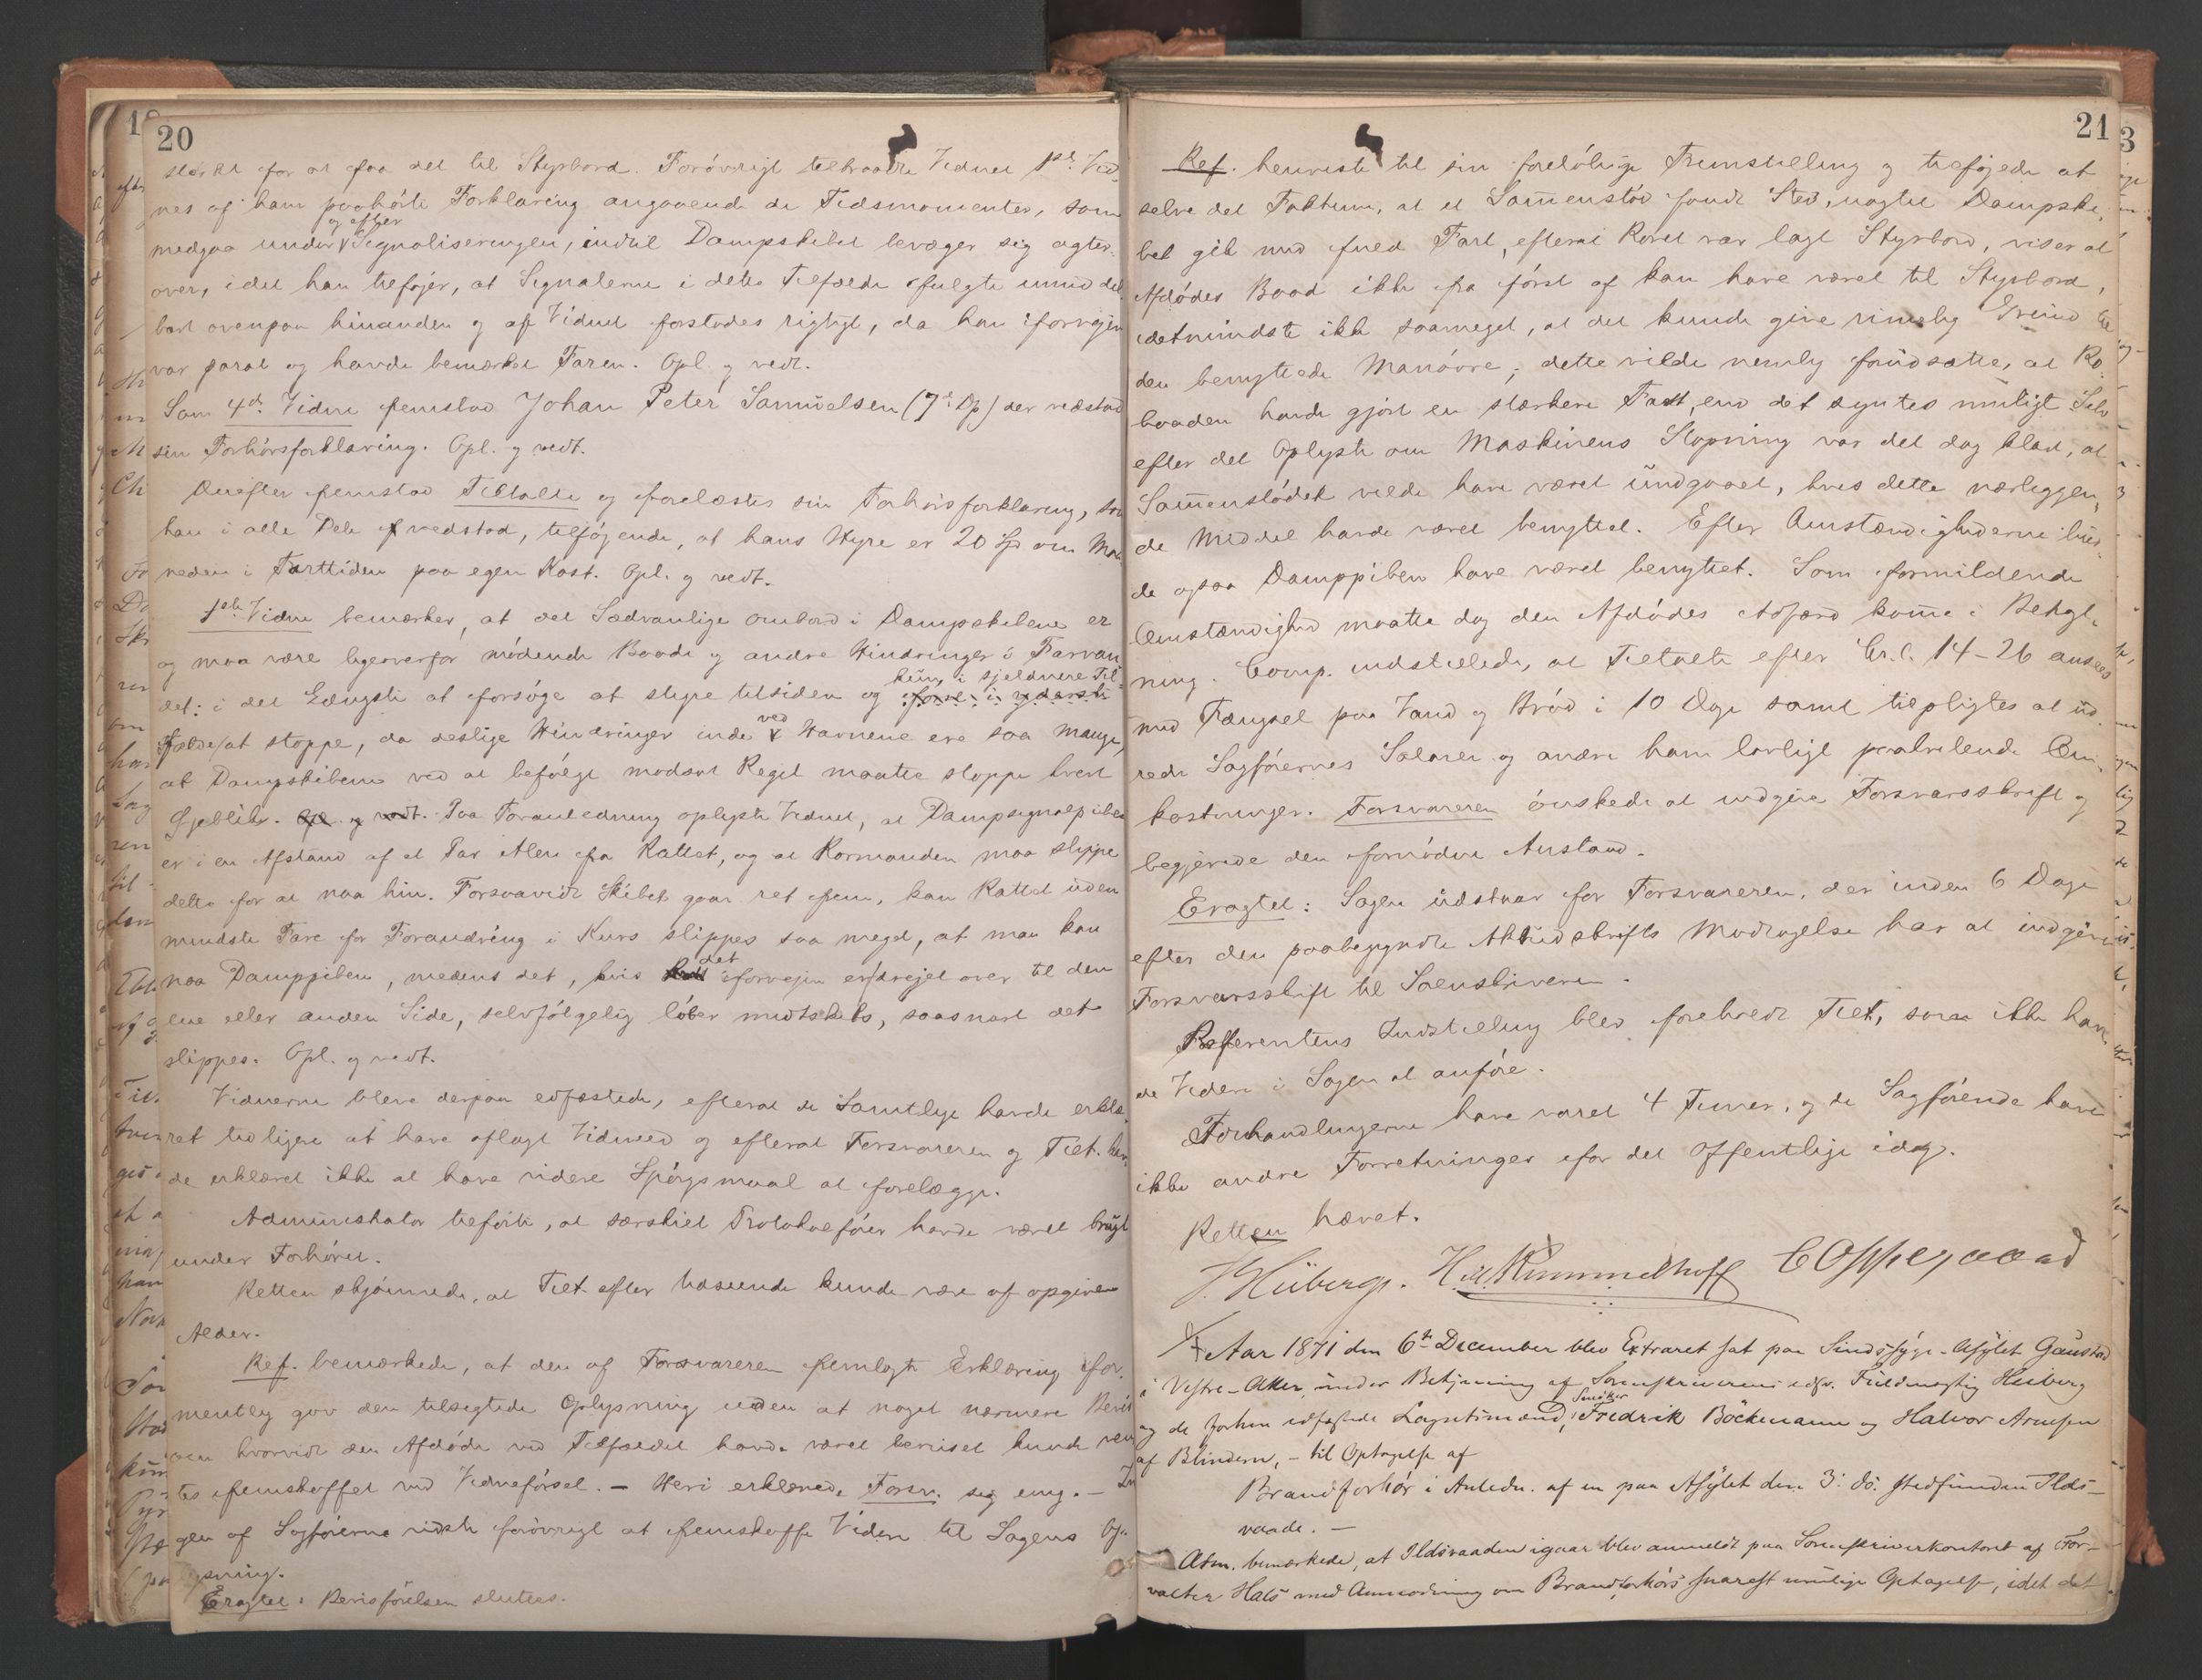 20
stærkt for at faa det til Styrbord. Forøvrigt tiltraadte Vidnet 1ste Vid-
nes af ham paahørte Forklaring angaaende de Tidsmomenter, som
medgaa under og efter Signaliseringen, indtil Dampskibet bevæger sig agter-
over, idet han tilføjer, at Signalerne i dette Tilfælde fulgte umiddel-
bart ovenpaa hinanden og af Vidnet forstodes rigtigt, da han iforvejen
var parat og havde bemærket Faren. Opl. og vedt.
Som 4de Vidne fremstod Johan Peter Samuelsen (7de Dp) der vedstod
sin Forhørsforklaring. Opl. og vedt.
Derefter fremstod Tiltalte og forelæstes sin Forhørsforklaring, som
han i alle Dele vedstod, tilføjende, at hans Hyre er 20 Spd om Maa-
neden i Farttiden paa egen Kost. Opl. og vedt.
1ste Vidne bemærker, at det Sædvanlige ombord i Dampskibene er
og maa være ligeoverfor mødende Baade og andre Hindringer i Farvan-
det: i det Længste at forsøge at styre tilsiden og kun i sjeldnere Til-
fælde at stoppe, da deslige Hindringer inde ved Havnene ere saa mange,
at Dampskibene ved at befølge modsat Regel maatte stoppe hvert
Øjeblik. Opl. og vedt. Paa Foranledning oplyste Vidnet, at Dampsignalpiben
er i en Afstand af et Par Alen fra Rattet, og at Rormanden maa slippe
dette for at naa hin. Forsaavidt Skibet gaar ret frem, kan Rattet uden
mindste Fare for Forandring i Kurs slippes saa meget, at man kan
naa Damppiben, medens det, hvis det iforvejen er drejet over til den
ene eller anden Side, selvfølgelig løber midtskibs, saasnart det
slippes. Opl. og vedt.
Vidnerne bleve derpaa edfæstede, efterat de Samtlige havde erklæ-
ret tidligere at have aflagt Vidneed og efterat Forsvareren og Tilt. hav-
de erklæret ikke at have videre Spørgsmaal at forelægge.
Administrator tilførte, at særskilt Protokolfører havde været brugt
under Forhøret.
Retten skjønnede, at Tilt. efter Udseende kunde være af opgiven
Alder.
Ref. bemærkede, at den af Forsvareren fremlagte Erklæring for-
mentlig gav den tilsigtede Oplysning uden at noget nærmere Bevis
om hvorvidt den Afdøde ved Tilfældet havde været beruset kunde ven-
tes fremskaffet ved Vidneførsel. – Heri erklærede Forsv. sig enig. – In-
gen af Sagførerne vidste forøvrigt at fremskaffe Videre til Sagens Op-
lysning.
Eragtet: Bevisførelsen sluttes.
21
Ref. henviste til sin foreløbige Fremstilling og tilføjede at
selve det Faktum, at et Sammenstød fandt Sted, uagtet Dampski-
bet gik med fuld Fart, efterat Roret var lagt Styrbord, viser at
Afdødes Baad ikke fra først af kan have været til Styrbord,
idetmindste ikke saameget, at det kunde give rimelig Grund til
den benyttede Manøvre; dette vilde nemlig forudsætte, at Ro-
baaden havde gjort en stærkere Fart, end det syntes muligt. Selv
efter det Oplyste om Maskinens Stopning var det dog klart, at
Sammenstødet vilde have været undgaaet, hvis dette nærliggen-
de Middel havde været benyttet. Efter Omstændighederne bur-
de ogsaa Damppiben have været benyttet. Som formildende
Omstændighed maatte dog den Afdødes Adfærd komme i Betragt-
ning. Comp. indstillede, at Tiltalte efter Cr. L. 14-26 ansees
med Fængsel paa Vand og Brød i 10 Dage samt tilpligtes at ud-
rede Sagførernes Salarer og andre ham lovligt paahvilende Om-
kostninger. Forsvareren ønskede at indgive Forsvarsskrift og
begjærede den fornødne Anstand.
Eragtet: Sagen udstaar for Forsvareren, der inden 6 Dage
efter den paabegyndte Aktudskrifts Modtagelse har at indgive
Forsvarsskrift til Sorenskriveren.
Referentens Indstilling blev foreholdt Tilt., som ikke hav-
de Videre i Sagen at anføre.
Forhandlingerne have varet 4 Timer, og de Sagførende have
ikke andre Forretninger for det Offentlige idag.
Retten hævet.
J. Hüberg. H. Kummelhoff C Oppegaard
Aar 1871 den 6te December blev Extraret sat paa Sindssyge-Asylet Gaustad
i Vestre-Aker under Betjening af Sorenskriverens edsv. Fuldmægtig Huiberg
og de forhen edfæstede Lagretsmænd, Snedker Fredrik Böckmann og Halvor Arnesen
af Blindern, – til Optagelse af
Brandforhør i Anledn. af en paa Asylet den 3: ds. stedfunden Ilds-
vaade. –
Adm. bemærkede, at Ildsvaaden igaar blev anmeldt paa Sorenskriverkontoret af For-
valter Hals med Anmodning om Brandforhørs snarest mulige Optagelse, idet det